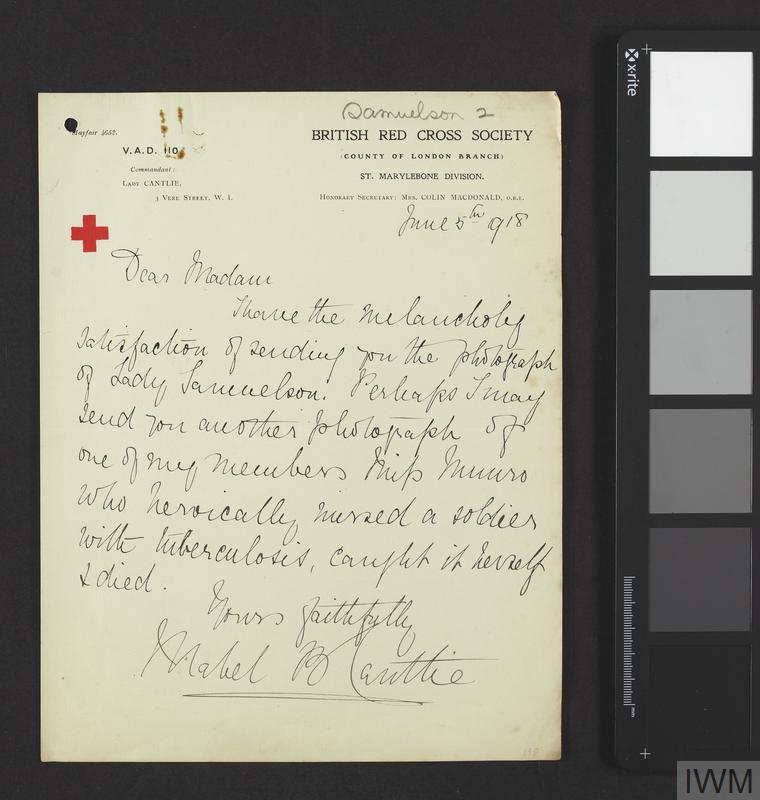 Samuelson 2
Mayfair 4652.
BRITISH RED CROSS SOCIETY
V.A.D. 110
(COUNTY OF LONDON BRANCH)
Commandant:
ST. MARYLEBONE DIVISION.
LADY CANTLIE,
3 VERE STREET, W. 1.
HONORARY SECRETARY: MRS. COLIN MACDONALD, O.B.E.
June 5th 1918
Dear Madam
I have the melancholy
satisfaction of sending you the photograph
of Lady Samuelson. Perhaps I may
send you another photograph of
one of my members Miss Munro
who heroically nursed a soldier
with tuberculosis, caught it herself
& died.
Yours faithfully
Mabel B Cantlie
x-rite
mm
IWM